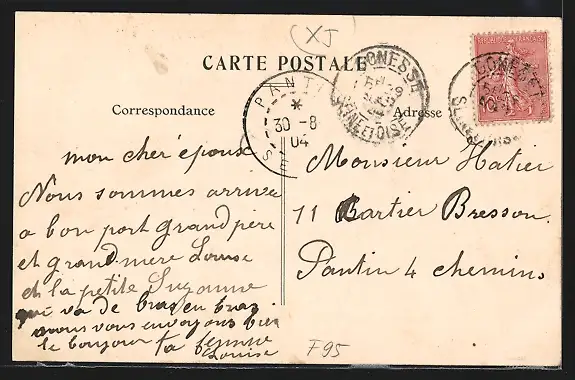 (XJ)
CARTE POSTALE
Correspondance
Adresse
PANTIN
*
30 -8
04
SEINE
GONESSE
SEINE ET OISE
GONESSE
mon cher épous
Nous sommes arrivée
a bon port grand père
et grand mere Louise
et la petite Suzanne
qui va de bras en bras
nous vous envoyons bien
le bonjour ta femme
Louise
Monsieur Hatier
11 Cartier Bresson
Pantin 4 chemins
F95